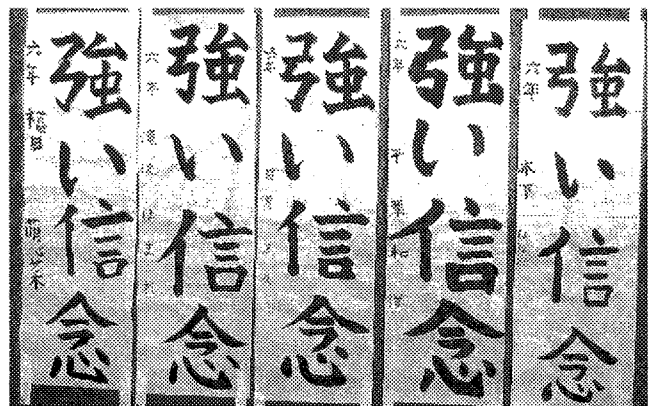 強い信念
六年
強い信念
六年
強い信念
六年
強い信念
六年
強い信念
六年